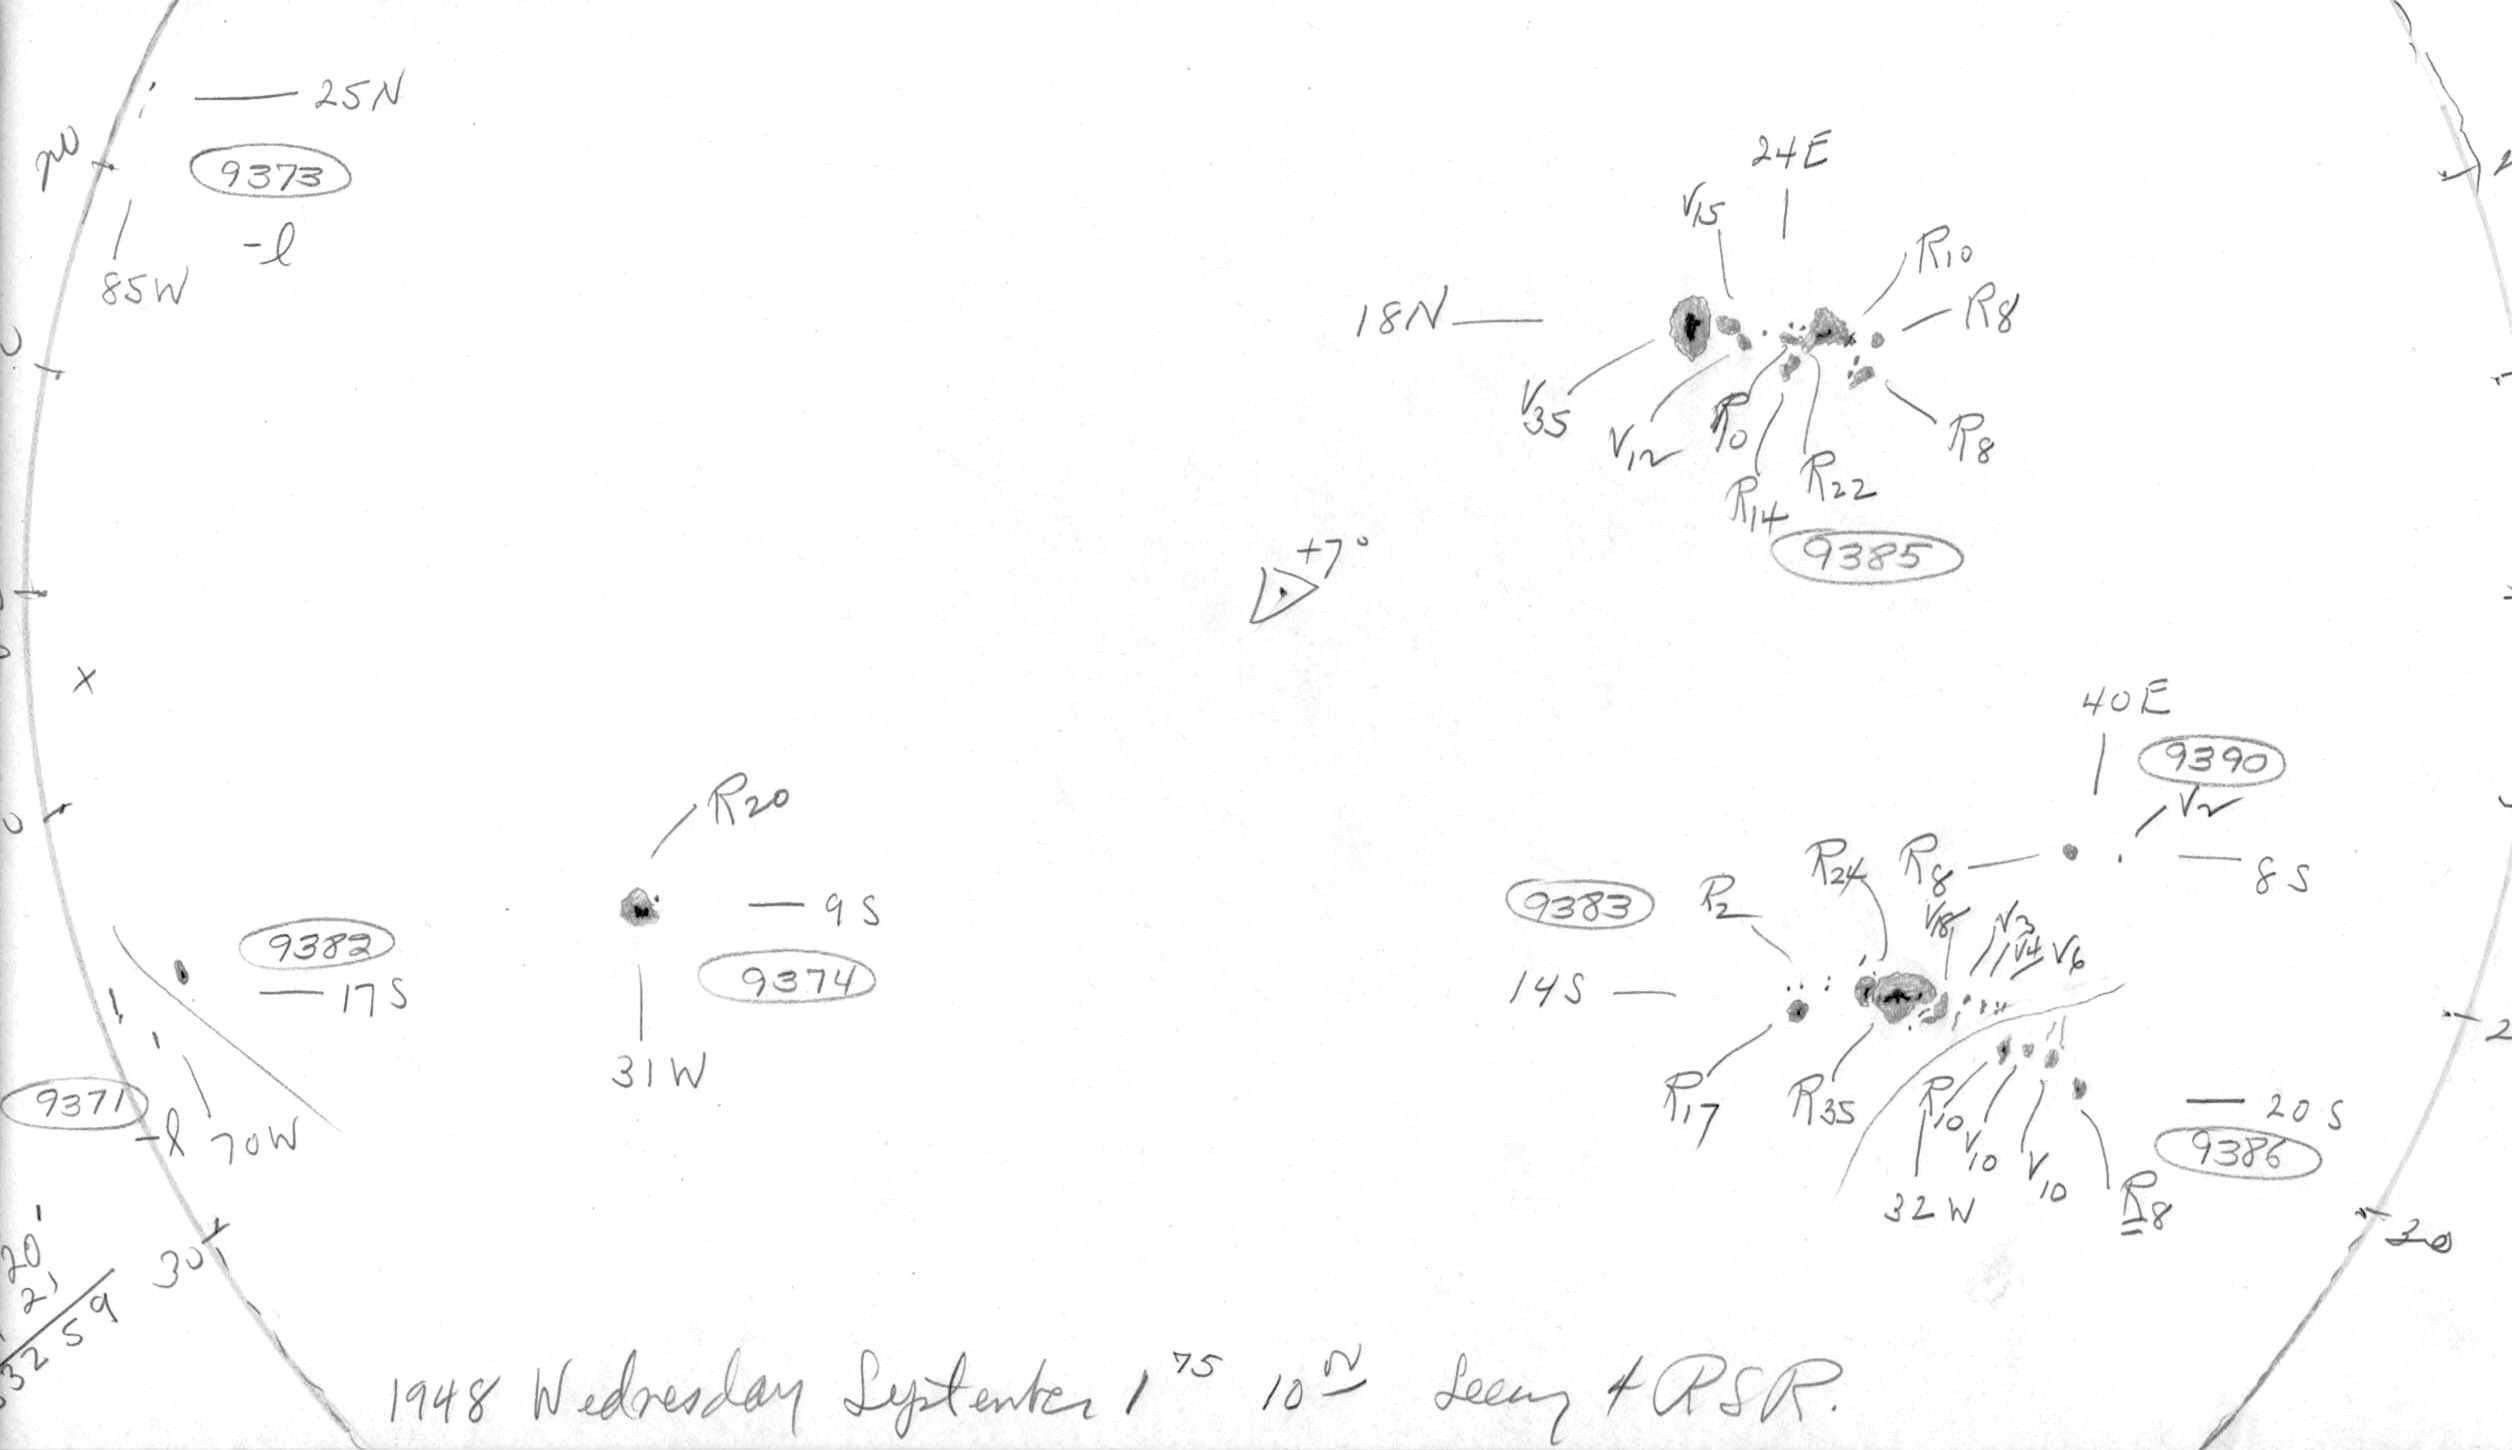 25N
9373
-l
85W
24E
V15
R10
18N
R8
V35
V12
R10
R8
R14
R22
9385
+7°
X
40E
9390
V2
R20
R24
R8
8S
9383
R2
V18
V3
V4
V6
9S
9374
9382
17S
14S
31W
R17
R35
R10
V10
V10
20S
9386
32W
R8
9371
-l
70W
30
30
20
2
32 59
1948 Wednesday September 1 75 10 Seeing 4 RSR.